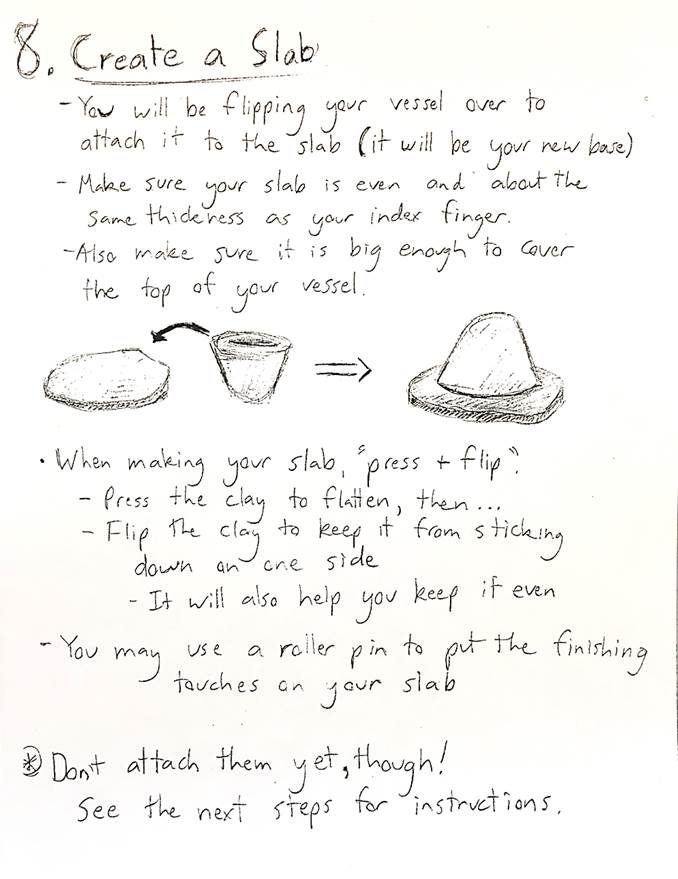 8. Create a Slab
- You will be flipping your vessel over to
attach it to the slab (it will be your new base)
- Make sure your slab is even and about the
same thickness as your index finger.
- Also make sure it is big enough to cover
the top of your vessel.
• When making your slab, "press + flip".
- Press the clay to flatten, then...
- Flip the clay to keep it from sticking
down on one side
- It will also help you keep it even
- You may use a roller pin to put the finishing
touches on your slab
* Don't attach them yet, though!
See the next steps for instructions.